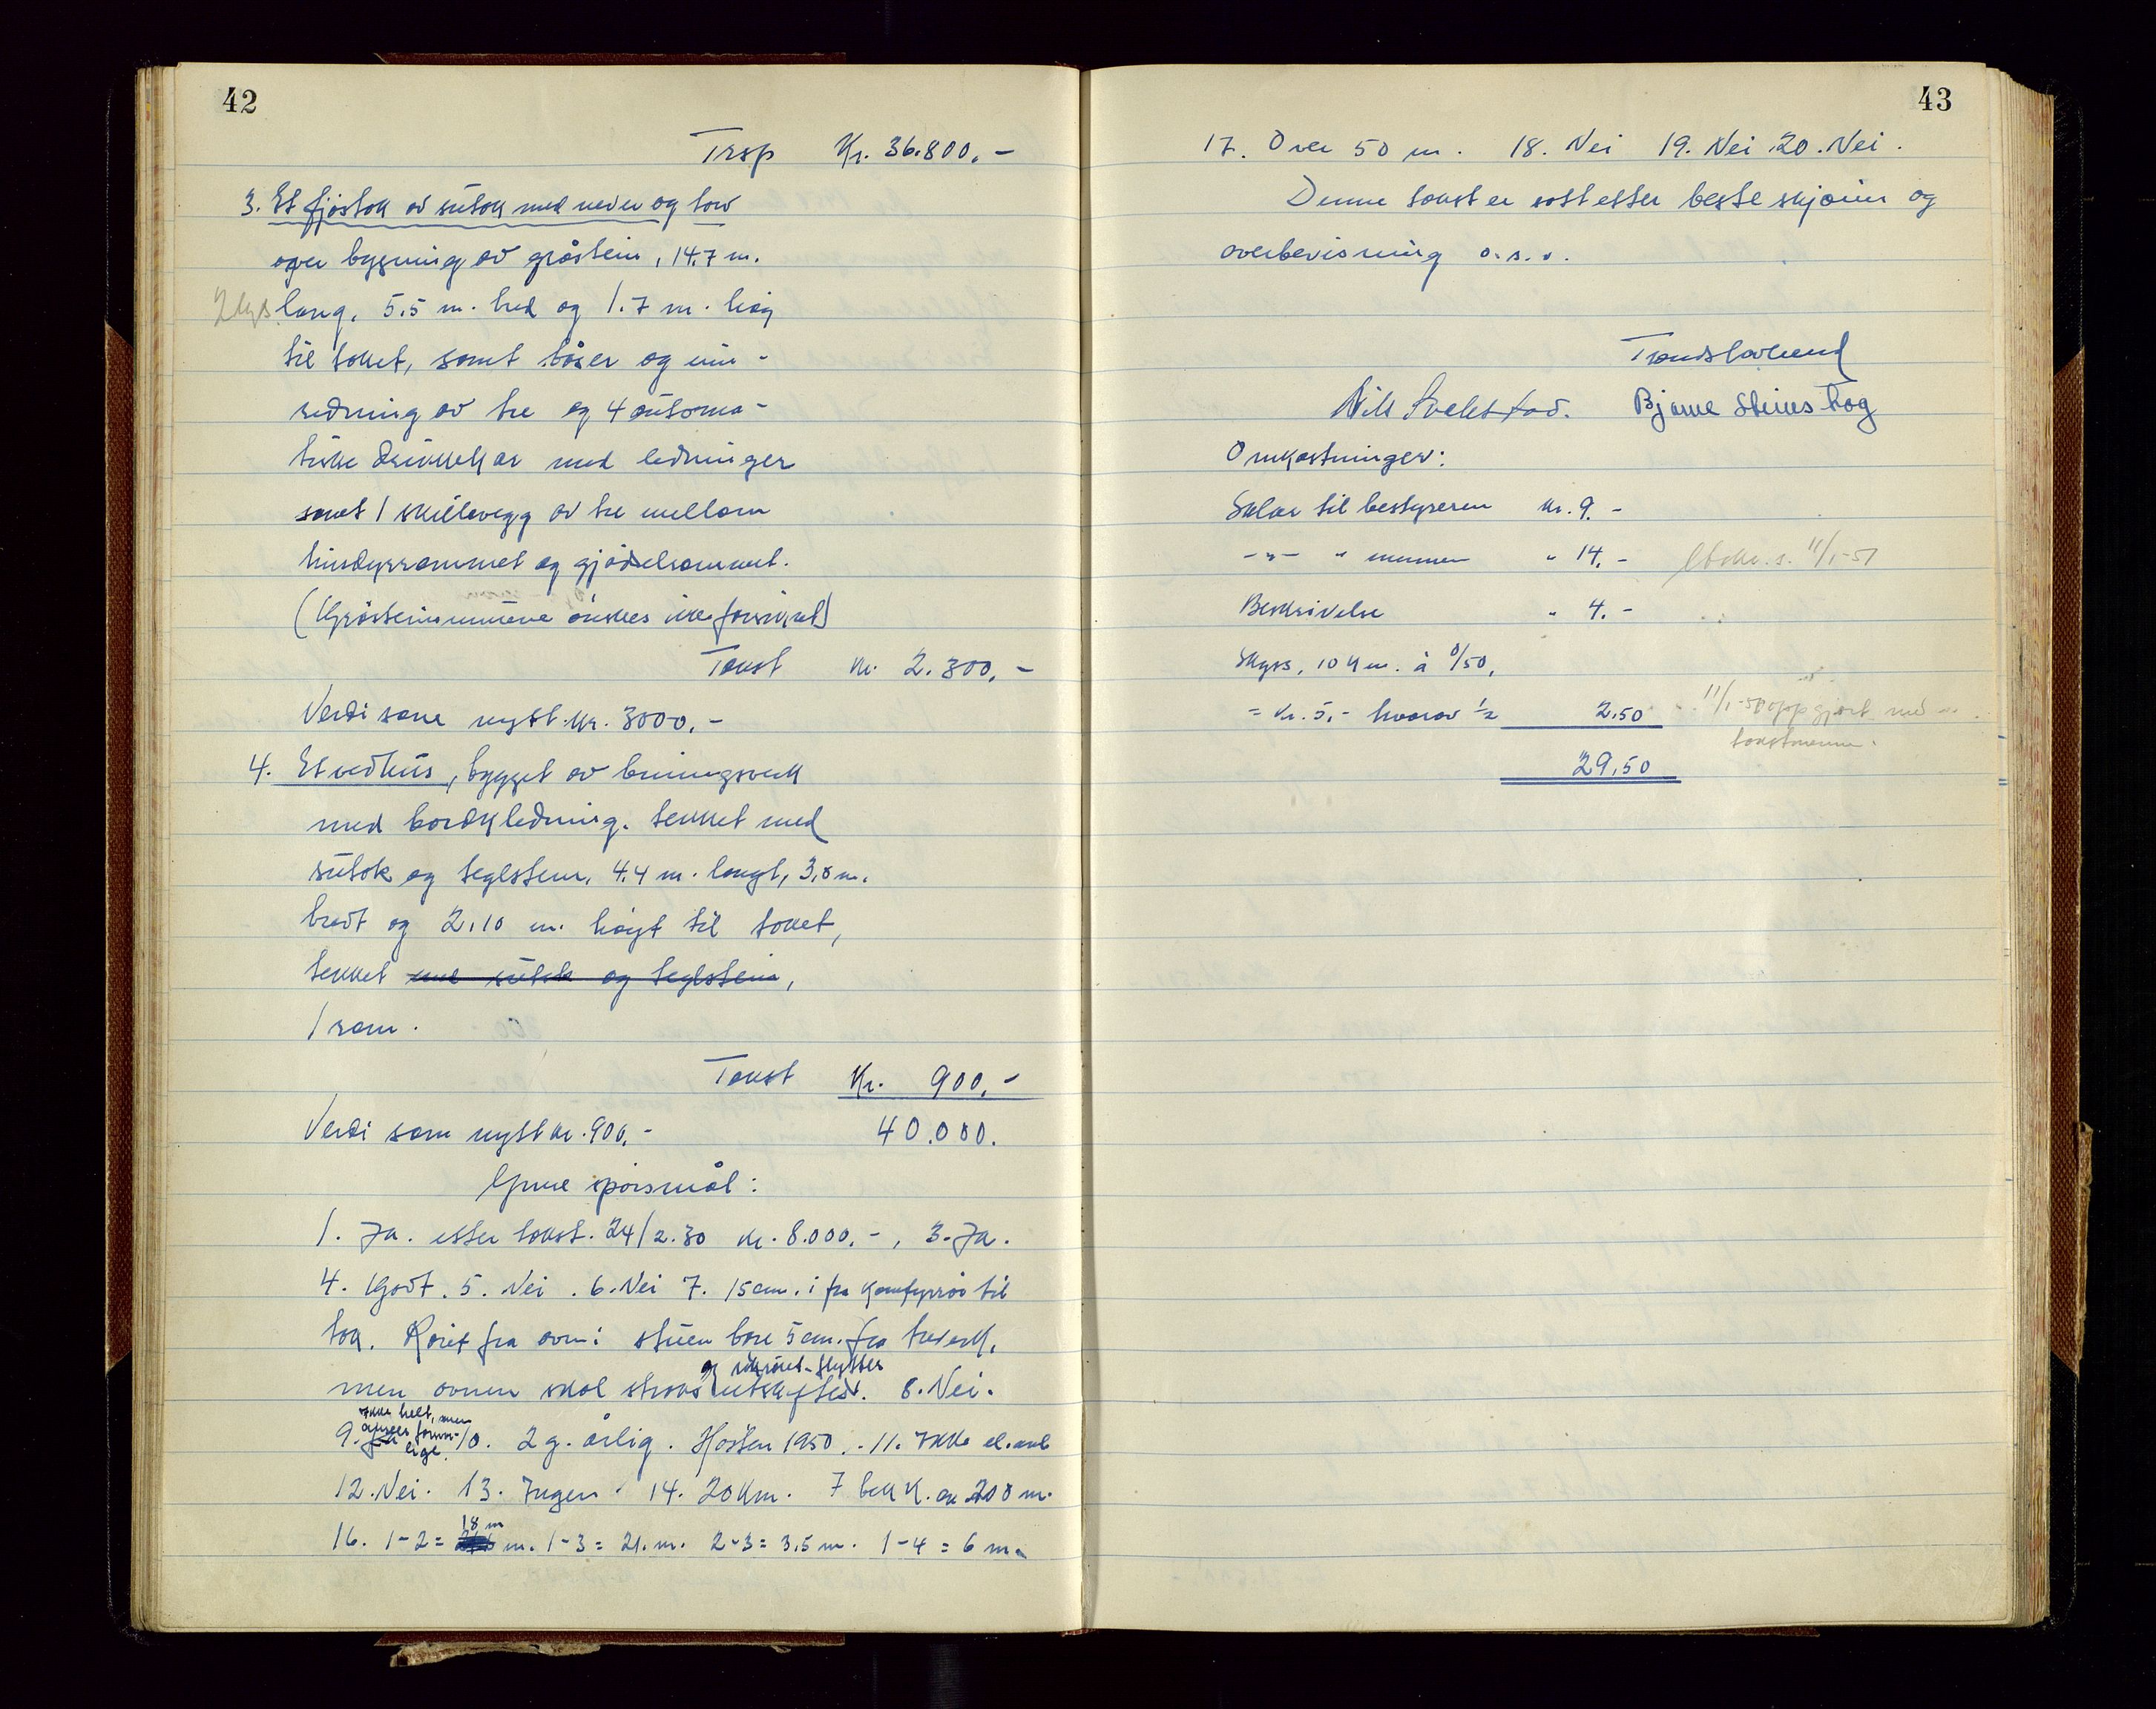 42
Trsp Kr. 36.800.-
3. Et fjøstak av sutak med never og torv
over bygning av gråstein, 14.7 m.
lang, 5.5 m. bred og 1.7 m. høg
til taket, samt båser og inn-
redning av tre og 4 automa-
tiske drikkekar med ledninger
samt 1 skillevegg av tre mellom
husdyrrommet og gjødselrommet.
(Gråsteinsmurene ønskes ikke forsikret)
Takst kr. 2.300.-
Verdi some nytt kr. 3000.-
4. Et vedhus, bygget av bindingsverk
med bordkledning. tekket med
sutak og teglstein, 4.4 m. langt, 3,8 m.
bredt og 2.10 m. høgt til taket,
tekket med sutak og teglstein,
1 rom.
Takst Kr. 900.-
Verdi som nytt kr. 900.- 40.000.
Gene spørsmål:
1. Ja. etter takst. 24/2.30 kr. 8.000.-, 3. Ja.
4. Godt. 5. Nei. 6. Nei 7. 15 cm. i fra komfyrrør til
tak. Røret fra ovn i stuen bare 5 cm. fra treverk,
og røkrøret flyttes
men ovnen skal straks utskiftes. 8. Nei.
ikke helt, men
9. Ja 10. 2 g. årlig. Høsten 1950. - 11. Ikke el. anl
lige.
12. Nei. 13. Ingen. 14. 20 km. 7 bekk. ca 200 m.
18 m
16. 1-2 = m. 1-3 = 21. m. 2-3 = 3,5 m. 1-4 = 6 m.
43
17. Over 50 m. 18. Nei 19. Nei 20. Nei.
Denne takst er satt etter beste skjønn og
overbevisning o.s.v.
Nils Bjarne Steinshog
Omkostninger:
Salær til bestyreren kr. 9.-
-"- " mennene " 14.- 11/1-51
Beskrivelse " 4.-
Skyss, 10 km. à 0/50,
= kr. 5.- hvorav 1/2 2.50 11/1-50 oppgjort med
takstmennene.
29,50